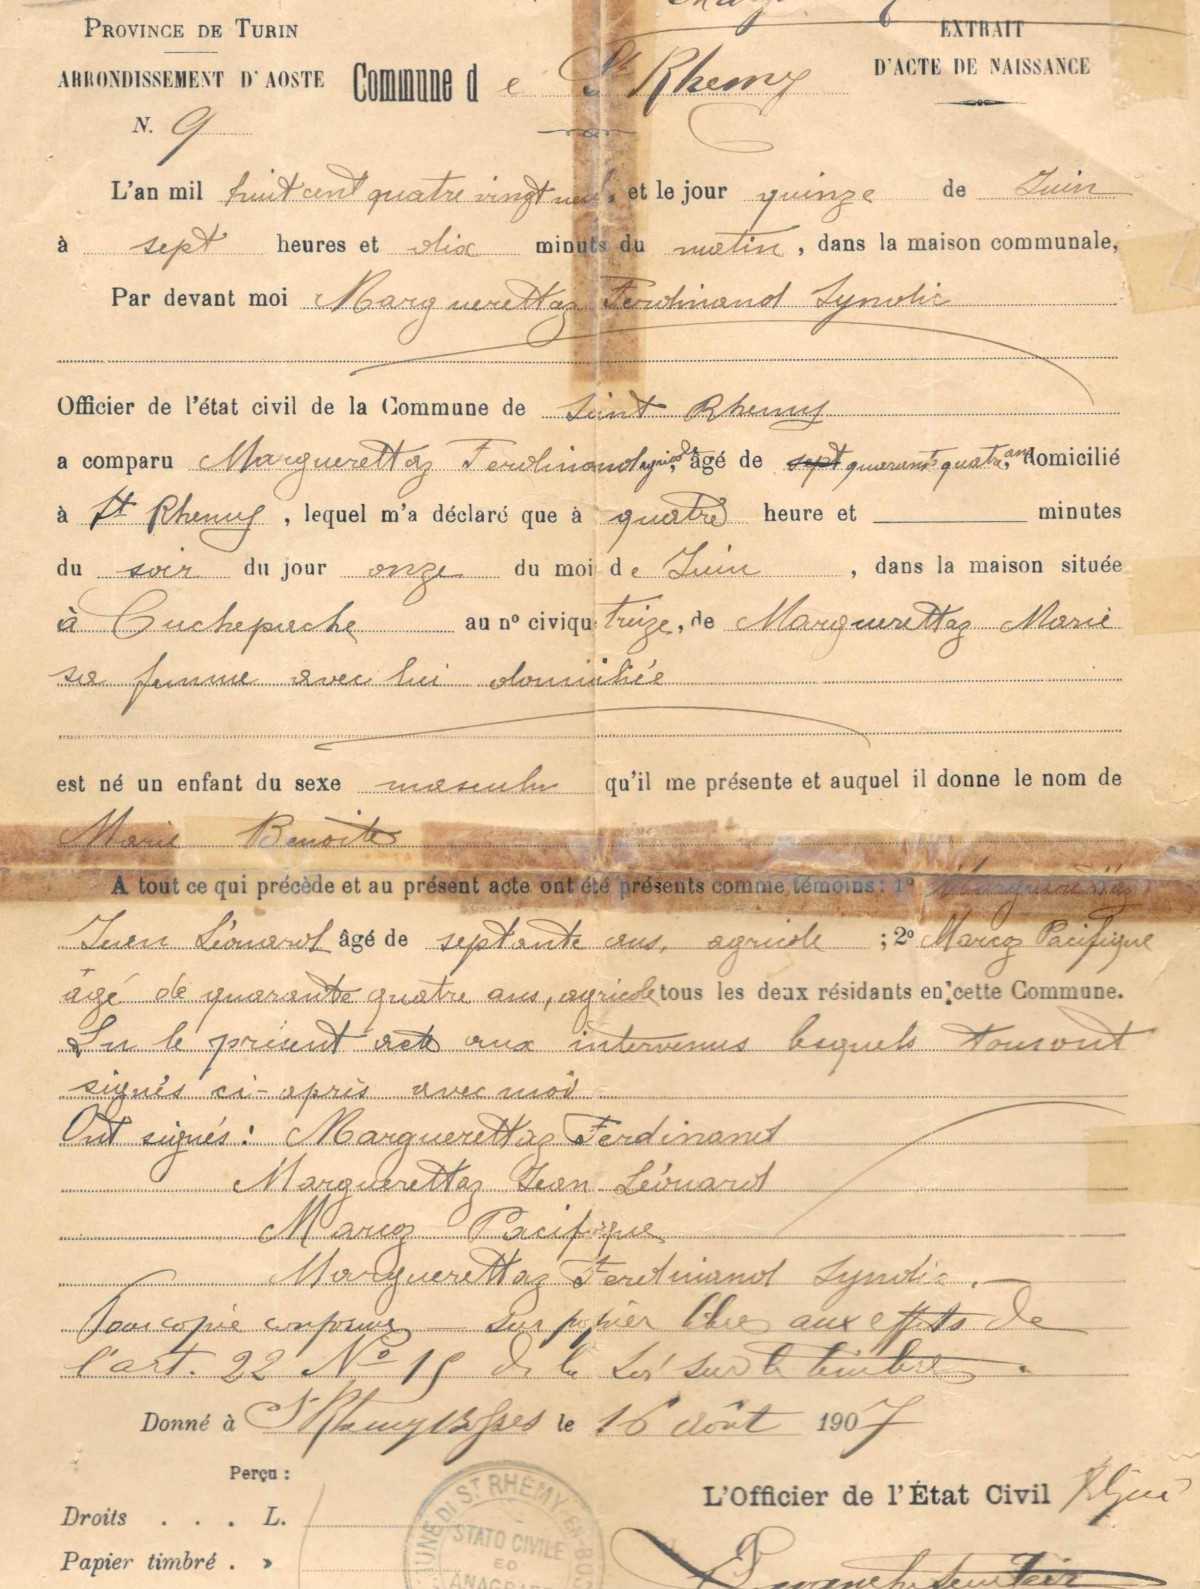 PROVINCE DE TURIN
ARRONDISSEMENT D'AOSTE
Commune de St Rhemy
EXTRAIT
D'ACTE DE NAISSANCE
N. 9
L'an mil huit cent quatre vingt neuf, et le jour quinze de Juin
à sept heures et dix minuts du matin, dans la maison communale,
Par devant moi Marguerettaz Ferdinand Syndic
Officier de l'état civil de la Commune de Saint Rhemy
a comparu Marguerettaz Ferdinand âgé de sept quarante quatre ans domicilié
à St Rhemy, lequel m'a déclaré que à quatre heure et minutes
du soir du jour onze du moi de Juin, dans la maison située
à Cuchepache au nº civiqu treize, de Marguerettaz Marie
sa femme avec lui domiciliée
est né un enfant du sexe masculin qu'il me présente et auquel il donne le nom de
Marie Benoite
A tout ce qui précède et au présent acte ont été présents comme témoins: 1º Marguerettaz
Jean Léonard âgé de septante ans, agricole; 2º Marcoz Pacifique
âgé de quarante quatre ans, agricole tous les deux résidants en cette Commune.
Lu le présent acte aux intervenus lesquels tous ont
signés ci-après avec moi
Ont signés: Marguerettaz Ferdinand
Marguerettaz Jean Léonard
Marcoz Pacifique
Marguerettaz Ferdinand Syndic.
Pour copie conforme sur papier libre aux effets de
l'art. 22 Nº 15 de la Loi sur le timbre.
Donné à St Rhemy Bosses le 16 août 1907
Perçu:
Droits . . . L.
Papier timbré . »
L'Officier de l'État Civil
COMUNE DI ST RHEMY-EN-BOS
STATO CIVILE
ED
ANAGRAFE